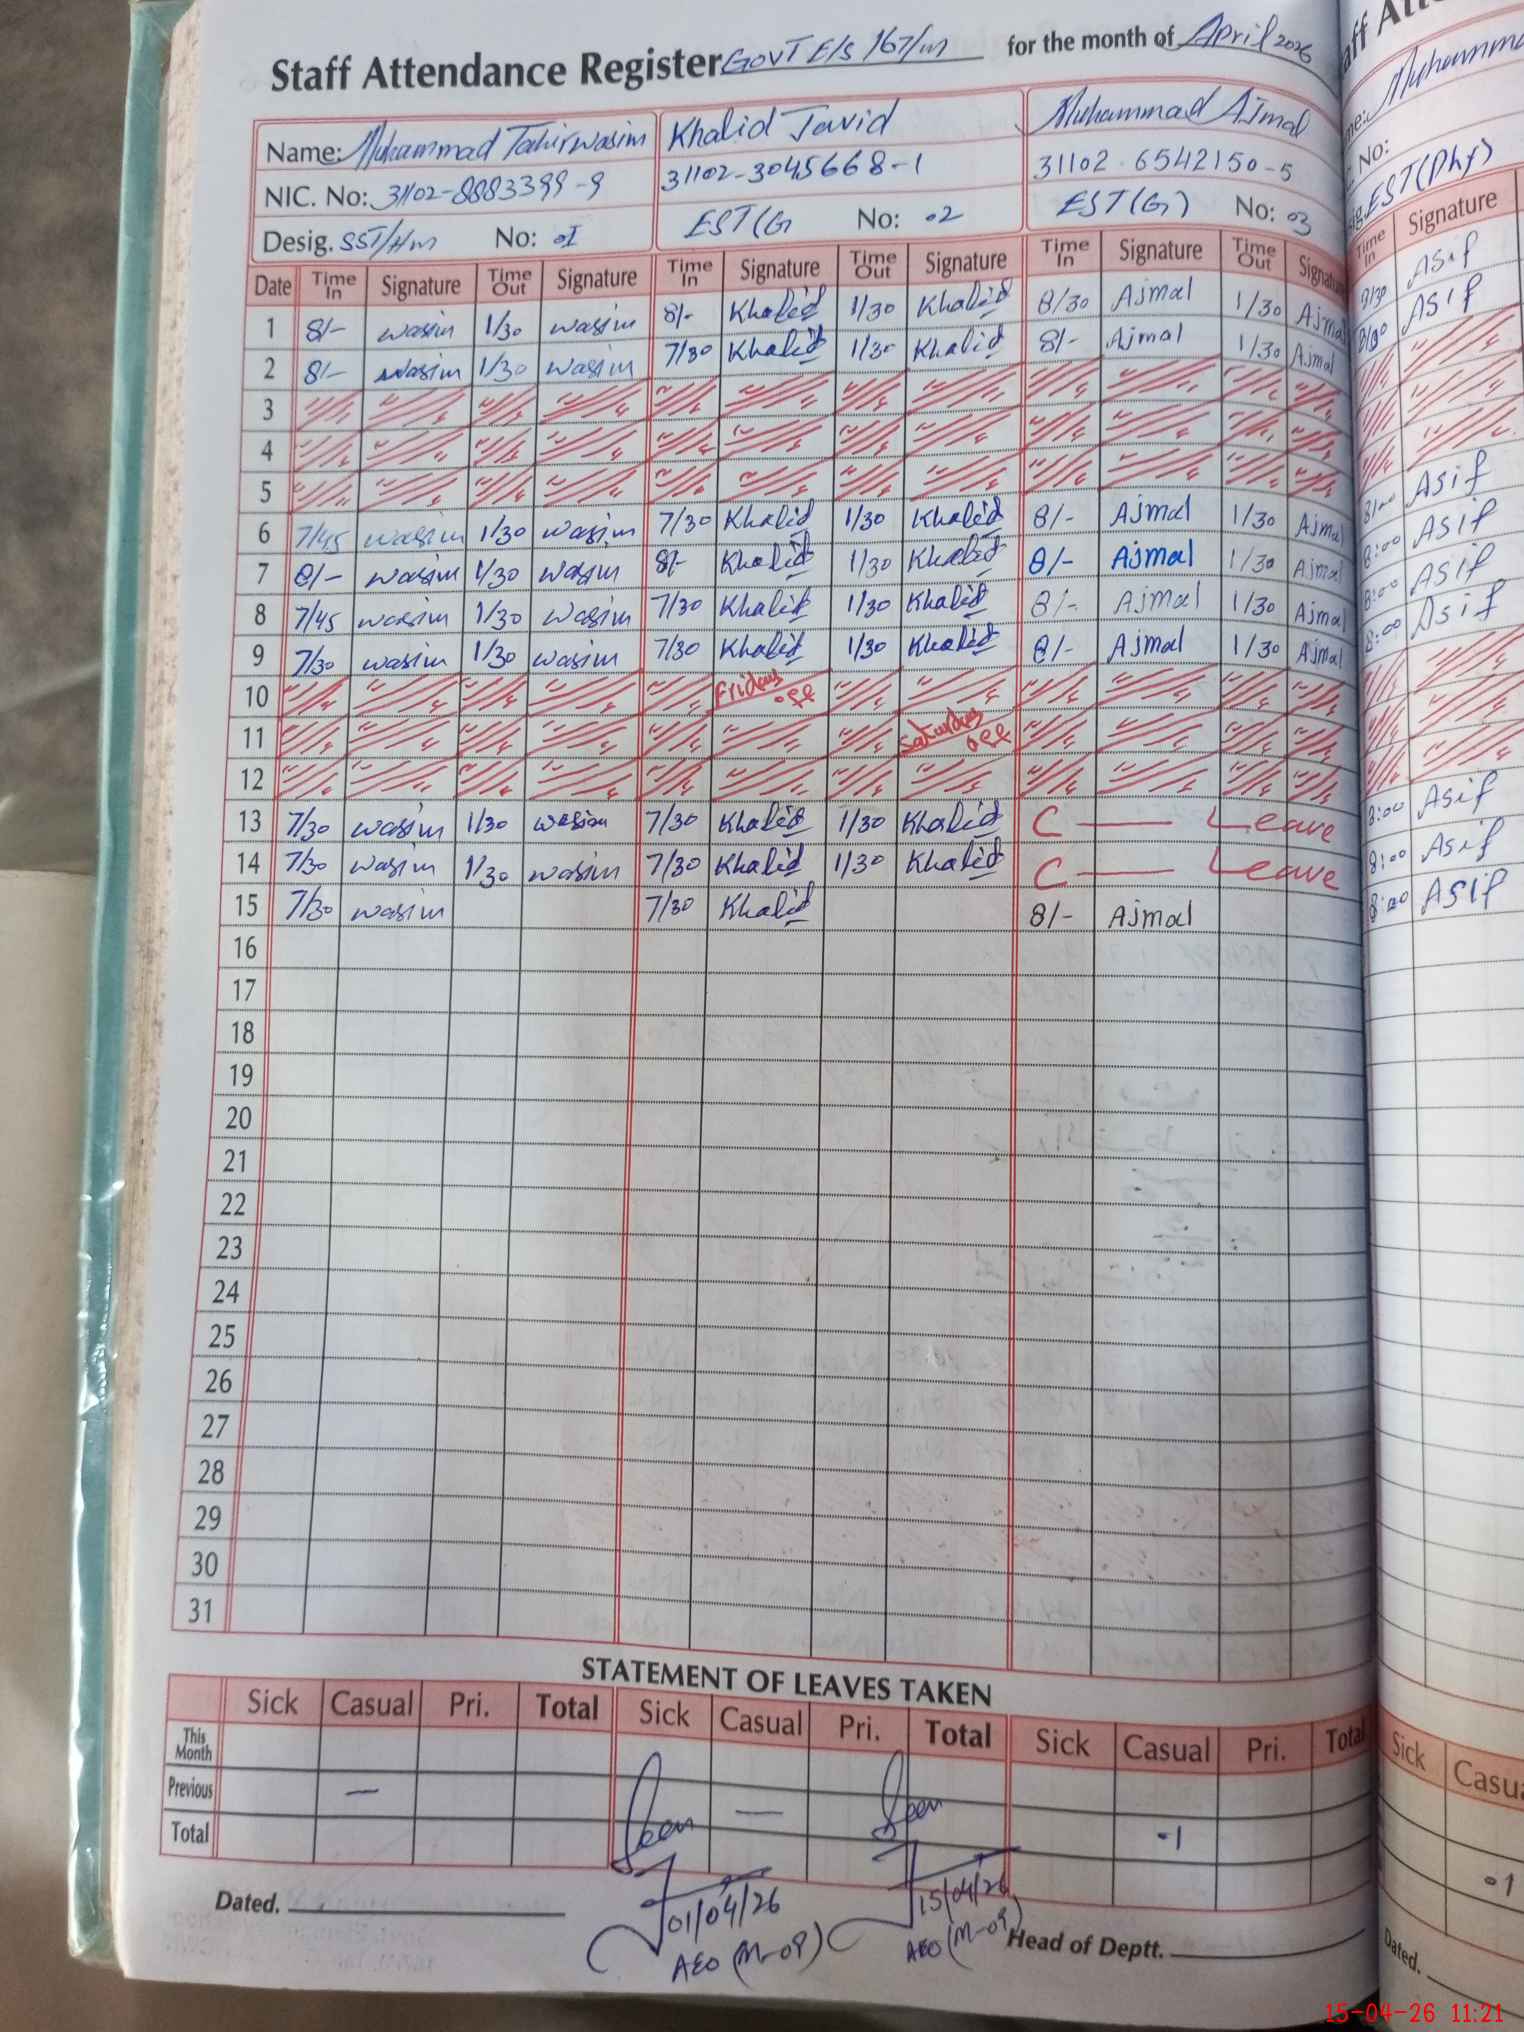 Staff Attendance Register Govt E/S 167/m for the month of April 2026
Name: Muhammad Tahir Wasim Khalid Javid Muhammad Ajmal
NIC. No: 31102-8883399-9 31102-3045668-1 31102-6542150-5
Desig. SST/Hm No: 01 EST(G No: 02 EST(G) No: 03 EST(Phy)
Date Time In Signature Time Out Signature Time In Signature Time Out Signature Time In Signature Time Out Signature Time In Signature
1 8/- wasim 1/30 wasim 8/- Khalid 1/30 Khalid 8/30 Ajmal 1/30 Ajmal Asif
2 8/- wasim 1/30 wasim 7/30 Khalid 1/30 Khalid 8/- Ajmal 1/30 Ajmal Asif
3
4
5
6 7/45 wasim 1/30 wasim 7/30 Khalid 1/30 Khalid 8/- Ajmal 1/30 Ajmal 8:00 Asif
7 8/- wasim 1/30 wasim 8/- Khalid 1/30 Khalid 8/- Ajmal 1/30 Ajmal 8:00 Asif
8 7/45 wasim 1/30 wasim 7/30 Khalid 1/30 Khalid 8/- Ajmal 1/30 Ajmal 8:00 Asif
9 7/30 wasim 1/30 wasim 7/30 Khalid 1/30 Khalid 8/- Ajmal 1/30 Ajmal 8:00 Asif
10 Friday off
11 Saturday off
12
13 7/30 wasim 1/30 wasim 7/30 Khalid 1/30 Khalid C — Leave 8:00 Asif
14 7/30 wasim 1/30 wasim 7/30 Khalid 1/30 Khalid C — Leave 8:00 Asif
15 7/30 wasim 7/30 Khalid 8/- Ajmal 8:00 Asif
16
17
18
19
20
21
22
23
24
25
26
27
28
29
30
31
STATEMENT OF LEAVES TAKEN
Sick Casual Pri. Total Sick Casual Pri. Total Sick Casual Pri. Total Sick
This Month
Previous — Seen — Seen
Total 01 01
Dated. 01/04/26 15/04/26 Head of Deptt. Dated.
AEO (M-09) AEO (M-09)
15-04-26 11:21